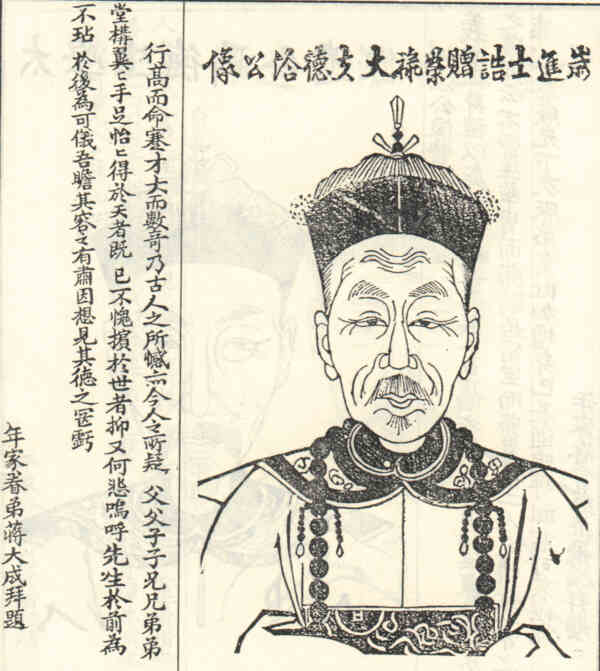 歲進士誥贈榮祿大夫德洽公像
行髙而命蹇才大而數奇乃古人之所憾亦今人之所疑父父子子兄兄弟弟
堂構翼〻手足怡〻得於天者既已不愧損於世者抑又何悲嗚呼先生於前為
不玷於後為可儀吾瞻其容之有肅因想見其德之虧
年家眷弟蔣大成拜題